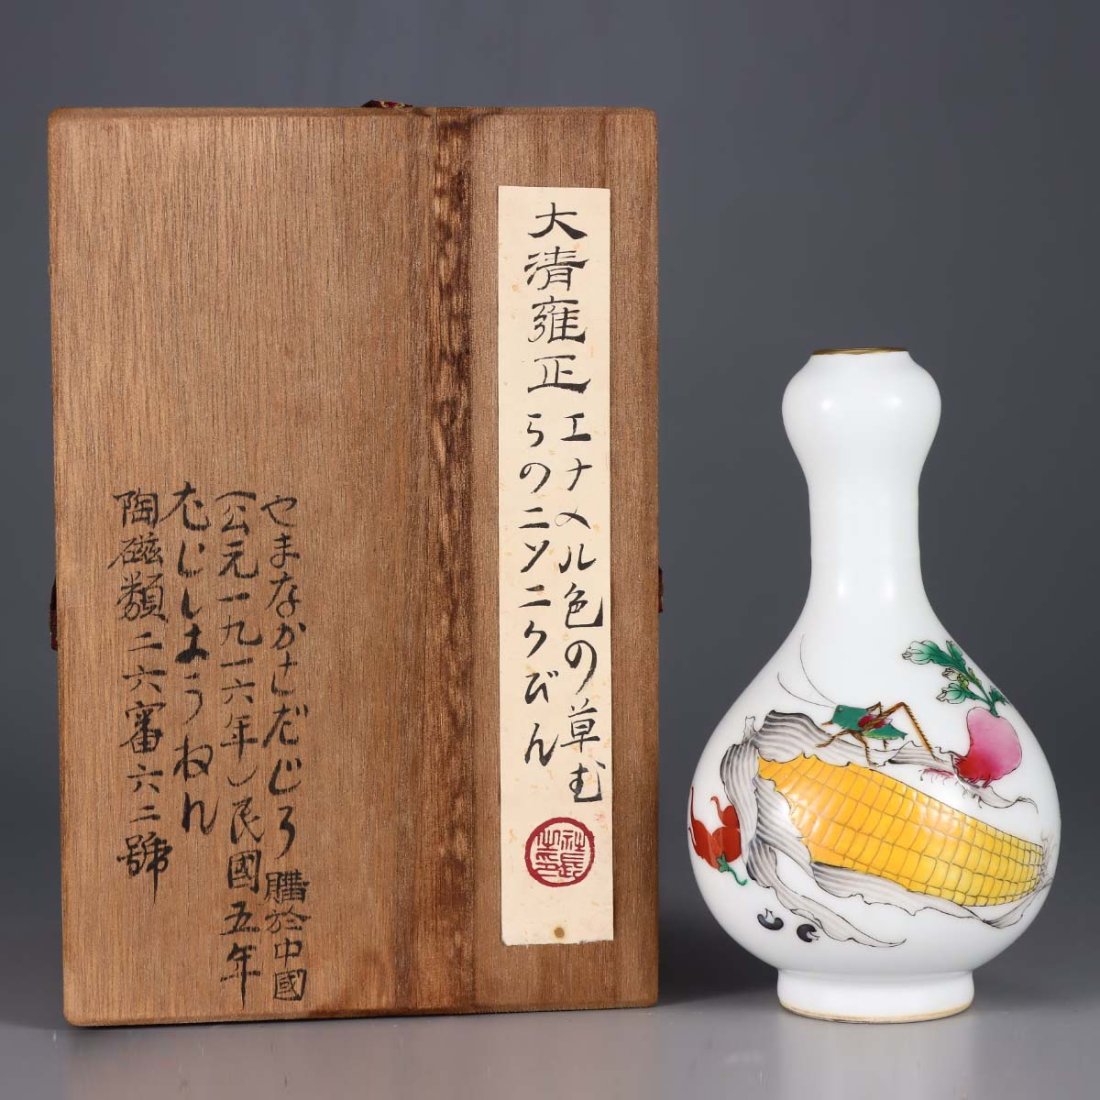 大清雍正
エナメル色の草む
らのニンニクびん
社長之印
やまなかさだじろ 購於中國
(公元一九一六年)民國五年
たじしようねん
陶磁類二六審六二號